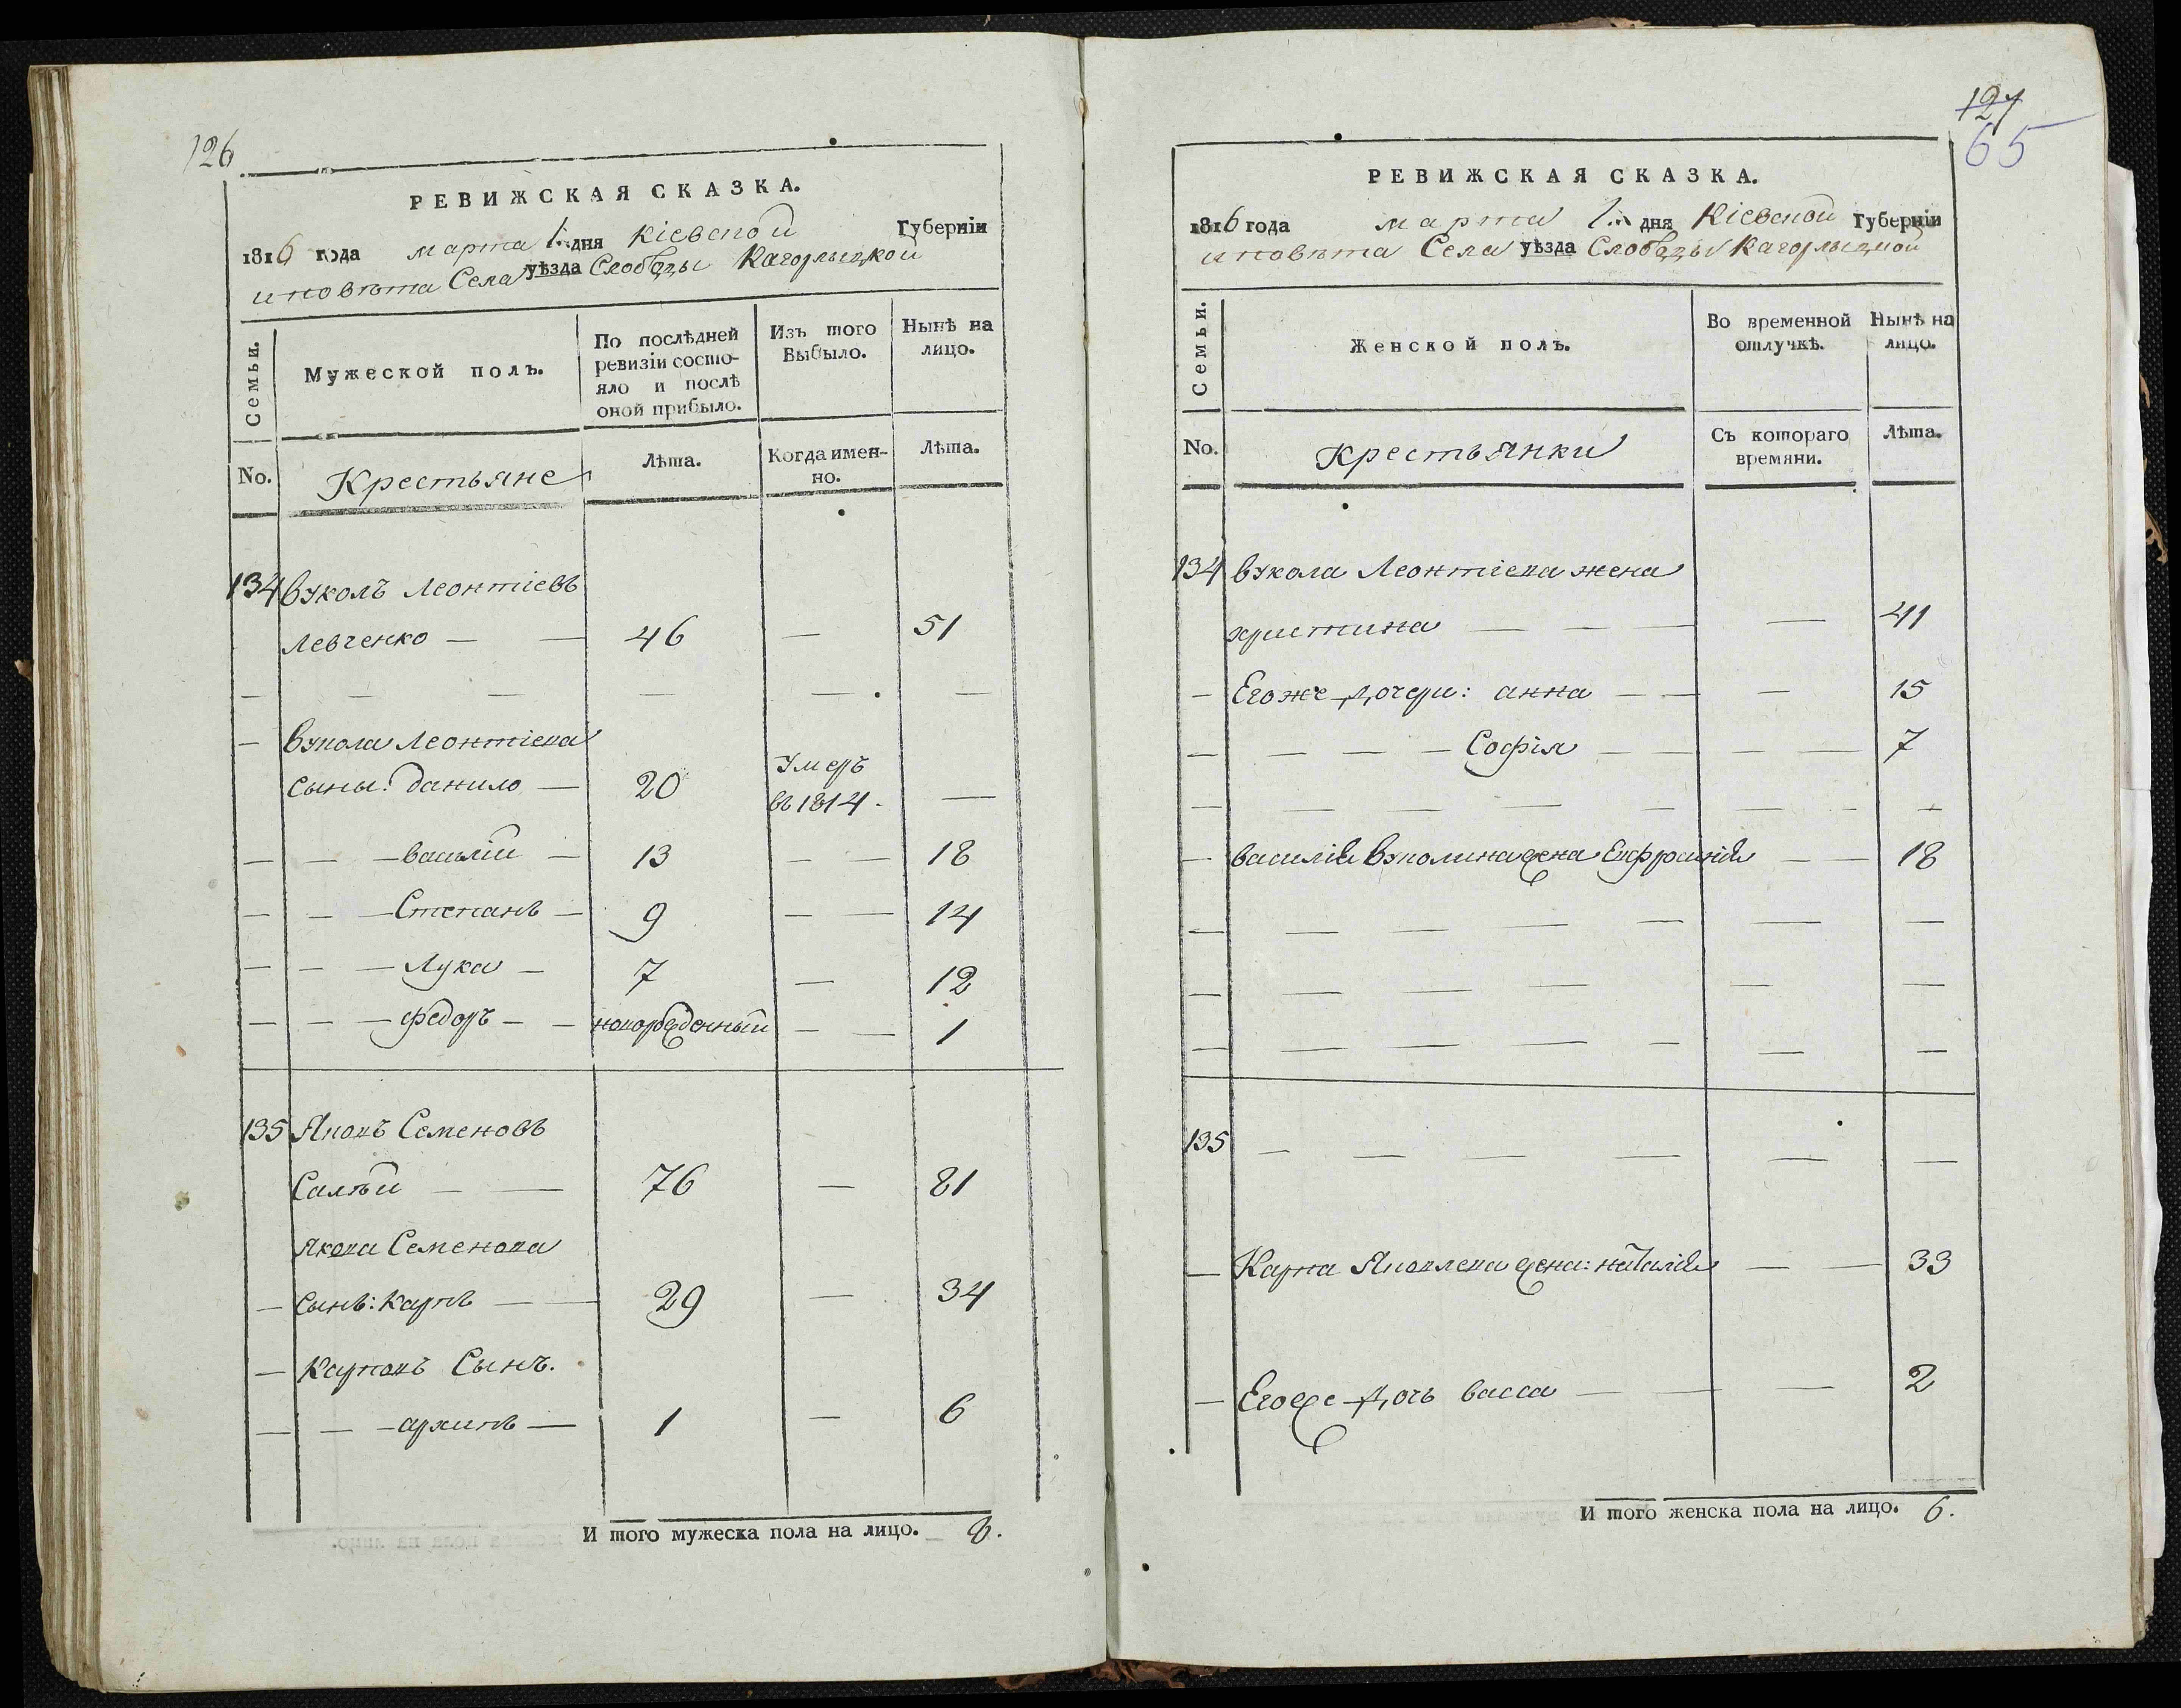 126
РЕВИЖСКАЯ СКАЗКА.
1816 года марта 1. дня Кіевской Губерніи
и повѣта Села уѣзда Слободы Кагорлыцкой
Семьи.
Мужеской полъ.
По послѣдней ревизіи состояло и послѣ оной прибыло.
Изъ того Выбыло.
Нынѣ на лицо.
No.
Крестьяне
Лѣта.
Когда именно.
Лѣта.
134 Вуколъ Леонтіевъ
Левченко — — 46 — 51
— — — — — —
— Вукола Леонтіева
сыны: данило — 20 Умеръ въ 1814. —
— — — василій — 13 — — 18
— — — Степанъ — 9 — — 14
— — — Лука — 7 — 12
— — — федоръ — — новорожденный — — 1
135 Яковъ Семеновъ
Салѣй — — 76 — 81
Якова Семенова
— сынъ: Карпъ — — 29 — 34
— Карповъ Сынъ.
— — — архипъ — 1 — 6
И того мужеска пола на лицо. — 8.
127
65
РЕВИЖСКАЯ СКАЗКА.
1816 года марта 1. дня Кіевской Губерніи
и повѣта Села уѣзда Слободы Кагорлыцкой
Семьи.
Женской полъ.
Во временной отлучкѣ.
Нынѣ на лицо.
No.
Крестьянки
Съ котораго времяни.
Лѣта.
134 Вукола Леонтіева жена
христина — — — — 41
— Егоже дочери: анна — — — 15
— — — — Софія — — — — 7
— — — — — — — —
— василія Вуколина жена Евфросинія — — 18
— — — — — — —
— — — — — — —
— — — — — — —
135 — — — — — —
— Карпа Яковлева жена: наталія — — 33
— Егоже дочь васса — — — 2
И того женска пола на лицо. 6.